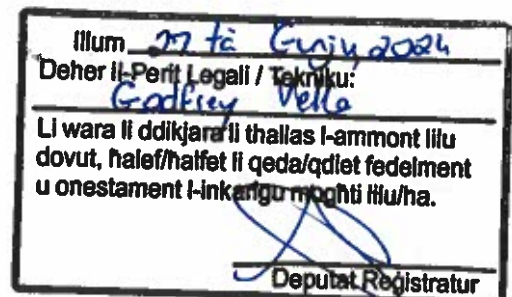 Illum 27 ta Ġunju, 2024
Deher il-Perit Legali / Tekniku:
Godfrey Vella
Li wara li ddikjara li tħallas l-ammont lilu
dovut, ħalef/ħalfet li qeda/qdiet fedelment
u onestament l-inkarigu mogħti lilu/ha.
Deputat Reġistratur